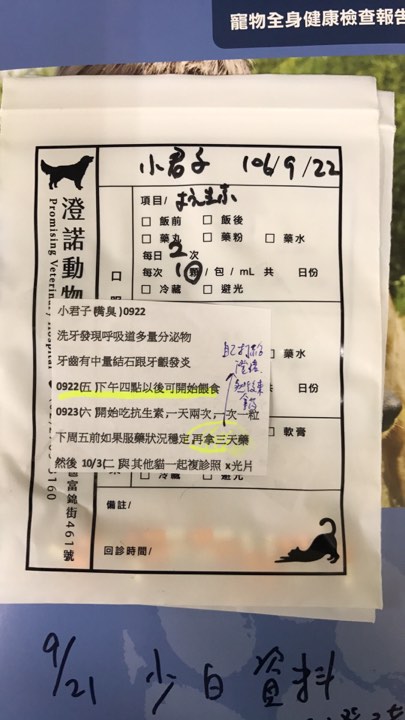 寵物全身健康檢查報告
小君子 106/9/22
澄諾動物
Promising Veterinary Hospital
富錦街461號
項目/抗生素
□ 飯前 □ 飯後
□ 藥丸 □ 藥粉 □ 藥水
每日2次
每次1顆/包/mL 共 日份
□ 冷藏 □ 避光
小君子(嘴臭)0922
洗牙發現呼吸道多量分泌物
牙齒有中量結石跟牙齦發炎
0922(五)下午四點以後可開始餵食
0923(六)開始吃抗生素,一天兩次,一次一粒
下周五前如果服藥狀況穩定,再拿三天藥
然後 10/3(二)與其他貓一起複診照 x光片
藥水
軟膏
日份
□ 冷藏 □ 避光
備註/
回診時間/
9/21 少白資料